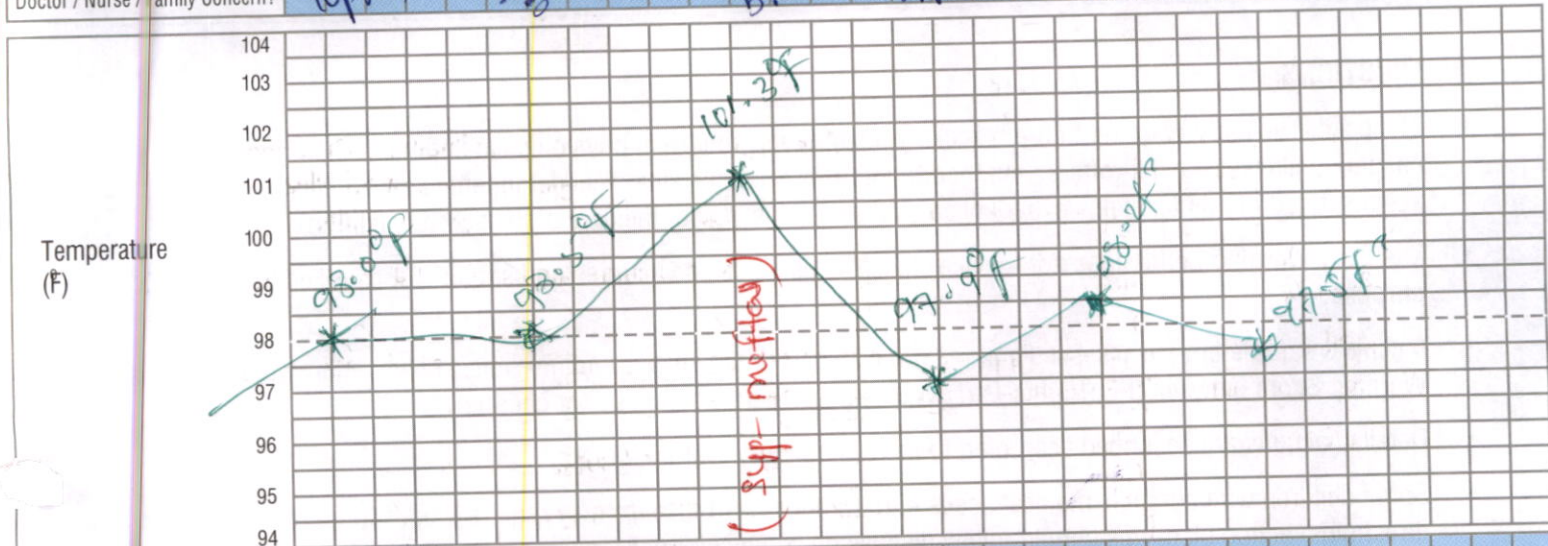 Doctor / Nurse / Family Concern?
104
103
102
101
100
99
98
97
96
95
94
Temperature
(°F)
98.0°F
98.5°F
101.3°F
97.9°F
98.2F°
97.5F°
(syp- meftal)